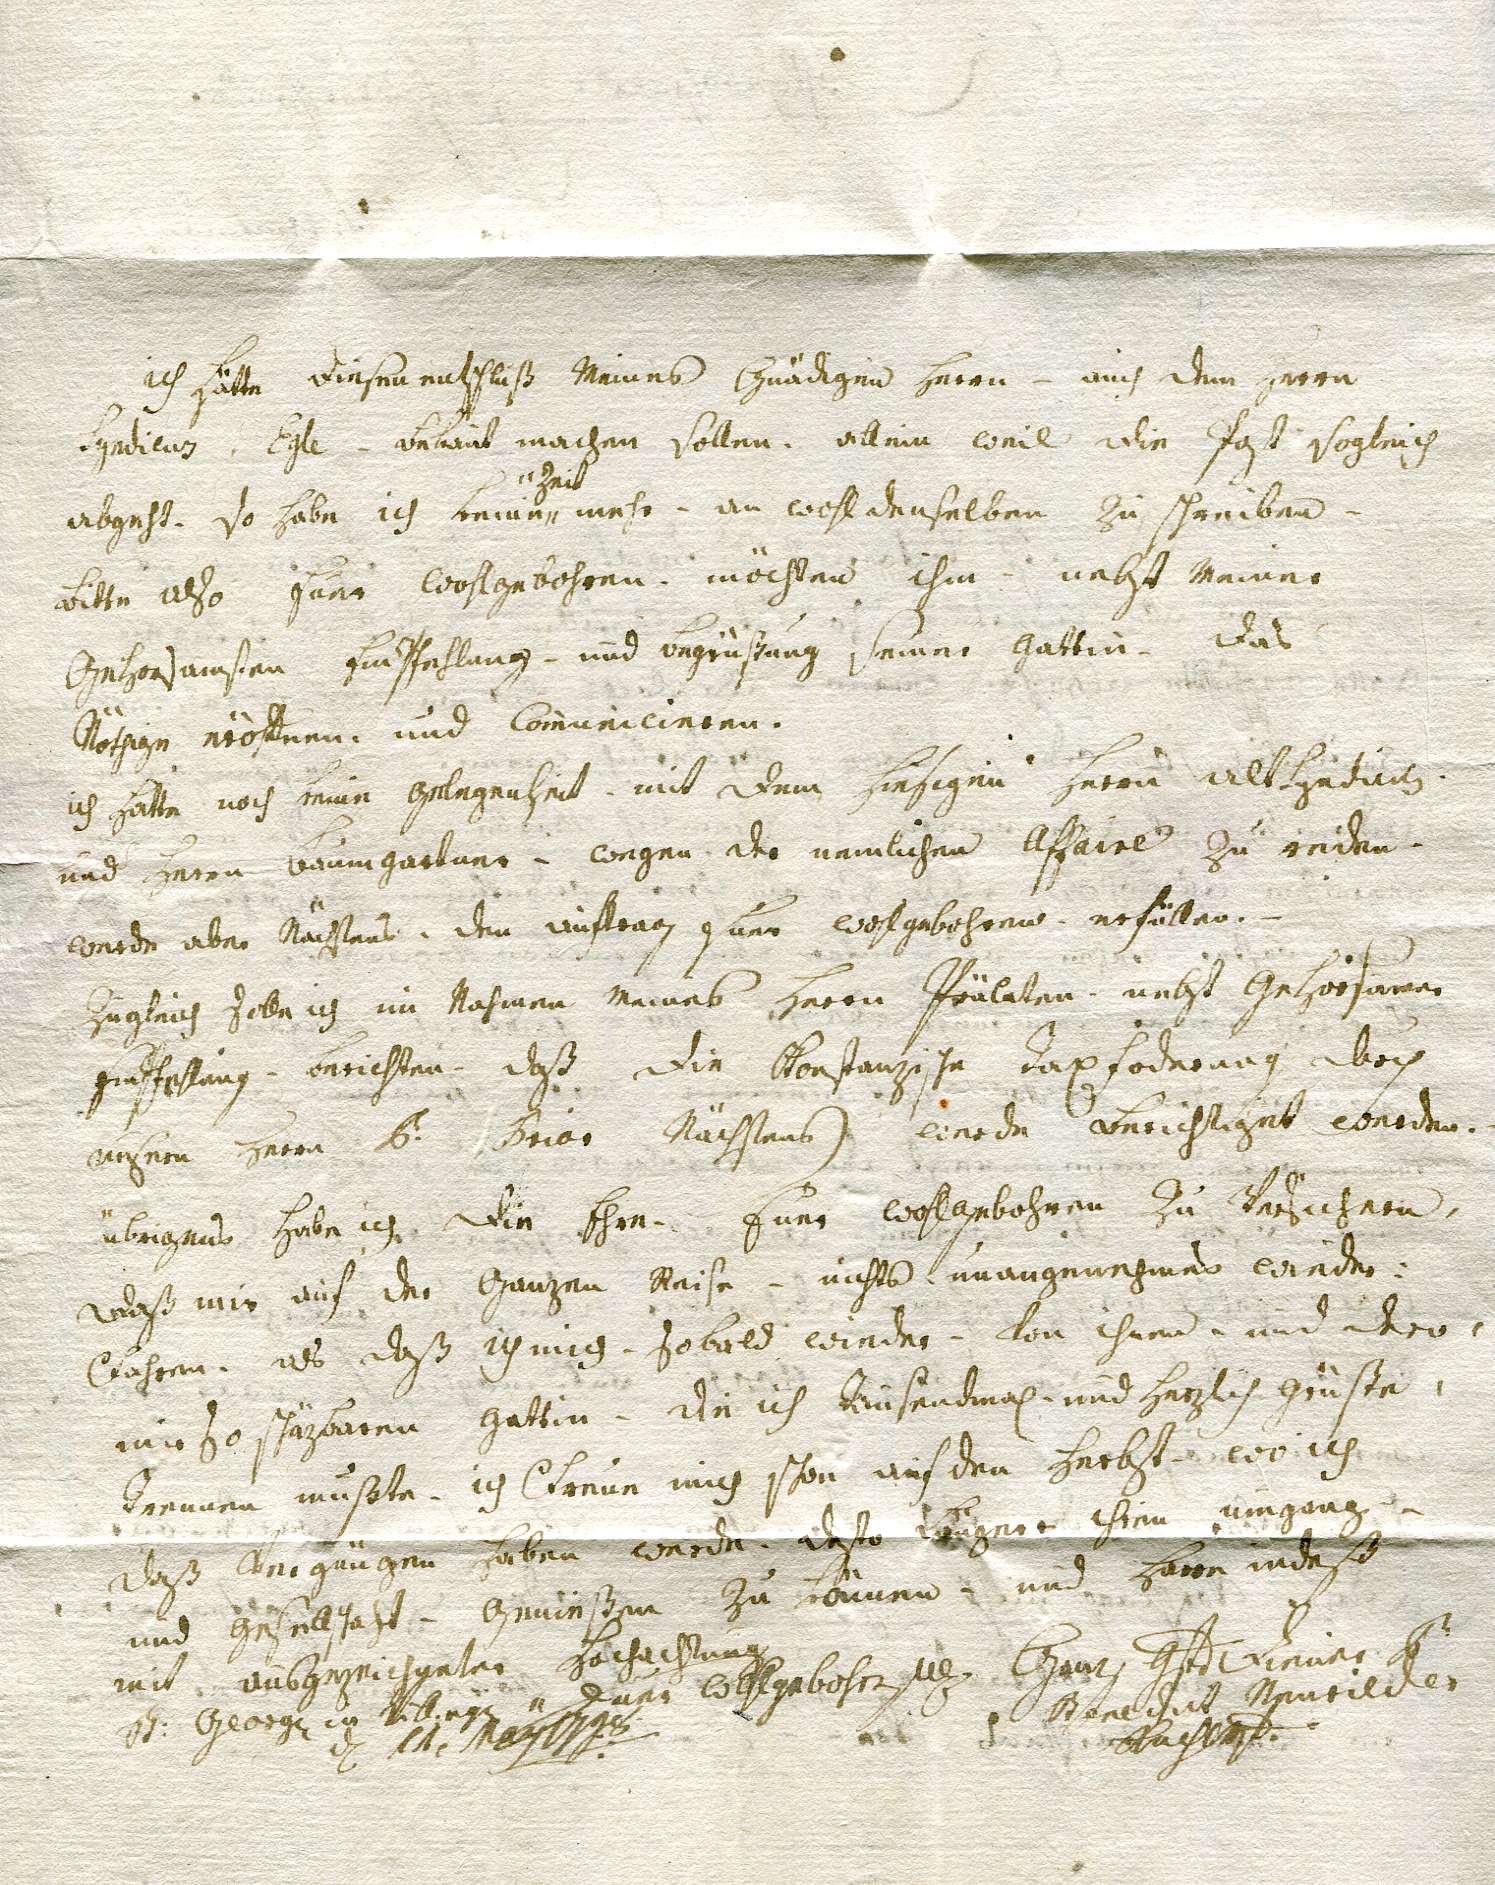 ich hätte diesen entschluß Meines Gnädigen Herrn - auch dem Herrn
Syndicus Egle - bekant machen sollen. allein weil die Post sogleich
abgeht. so habe ich keine Zeit mehr - an wohl denselben zu schreiben -
bitte also Euer Wohlgebohren. möchten ihm - nebst Meiner
Gehorsamsten Empfehlung - und begrüßung seiner Gattin - das
Nöthige eröffnen. und Comuniciren.
ich hatte noch keine gelegenheit - mit dem hiesigen Herrn alt Syndicus.
und Herrn Baumgartner - wegen der nemlichen Affaire zu reden -
werde aber Nächstens. den auftrag Euer Wohlgebohren - erfüllen. -
Zugleich solle ich im Nahmen Meines Herrn Prälaten - nebst Gehorsamer
Empfehlung - berichten - daß die Konstanzische Tax foderung durch
unsern Herrn P. Prior Nächstens werde berichtiget werden. -
übrigens habe ich die Ehre - Euer Wohlgebohren zu Versichern,
daß mir auf der Ganzen Reise - nichts unangenehmes wieder:
Fahren. als daß ich mich - sobald wieder - von ihnen - und dero,
mir so schäzbaren Gattin - die ich Tausendmal - und herzlich Grüße,
Trennen mußte - ich Freue mich schon auf den Herbst - wo ich
daß Vergnügen haben werde - desto länger ihren umgang -
und Gesellschaft - Genießen zu können - und harre indeß
mit ausgezeichneter Hochachtung
St: Georg in Villingen Euer Wohlgebohren Ganz Diener P:
d May Benedict